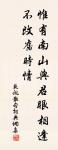 惟有南山與君眼相逢
不改舊時情